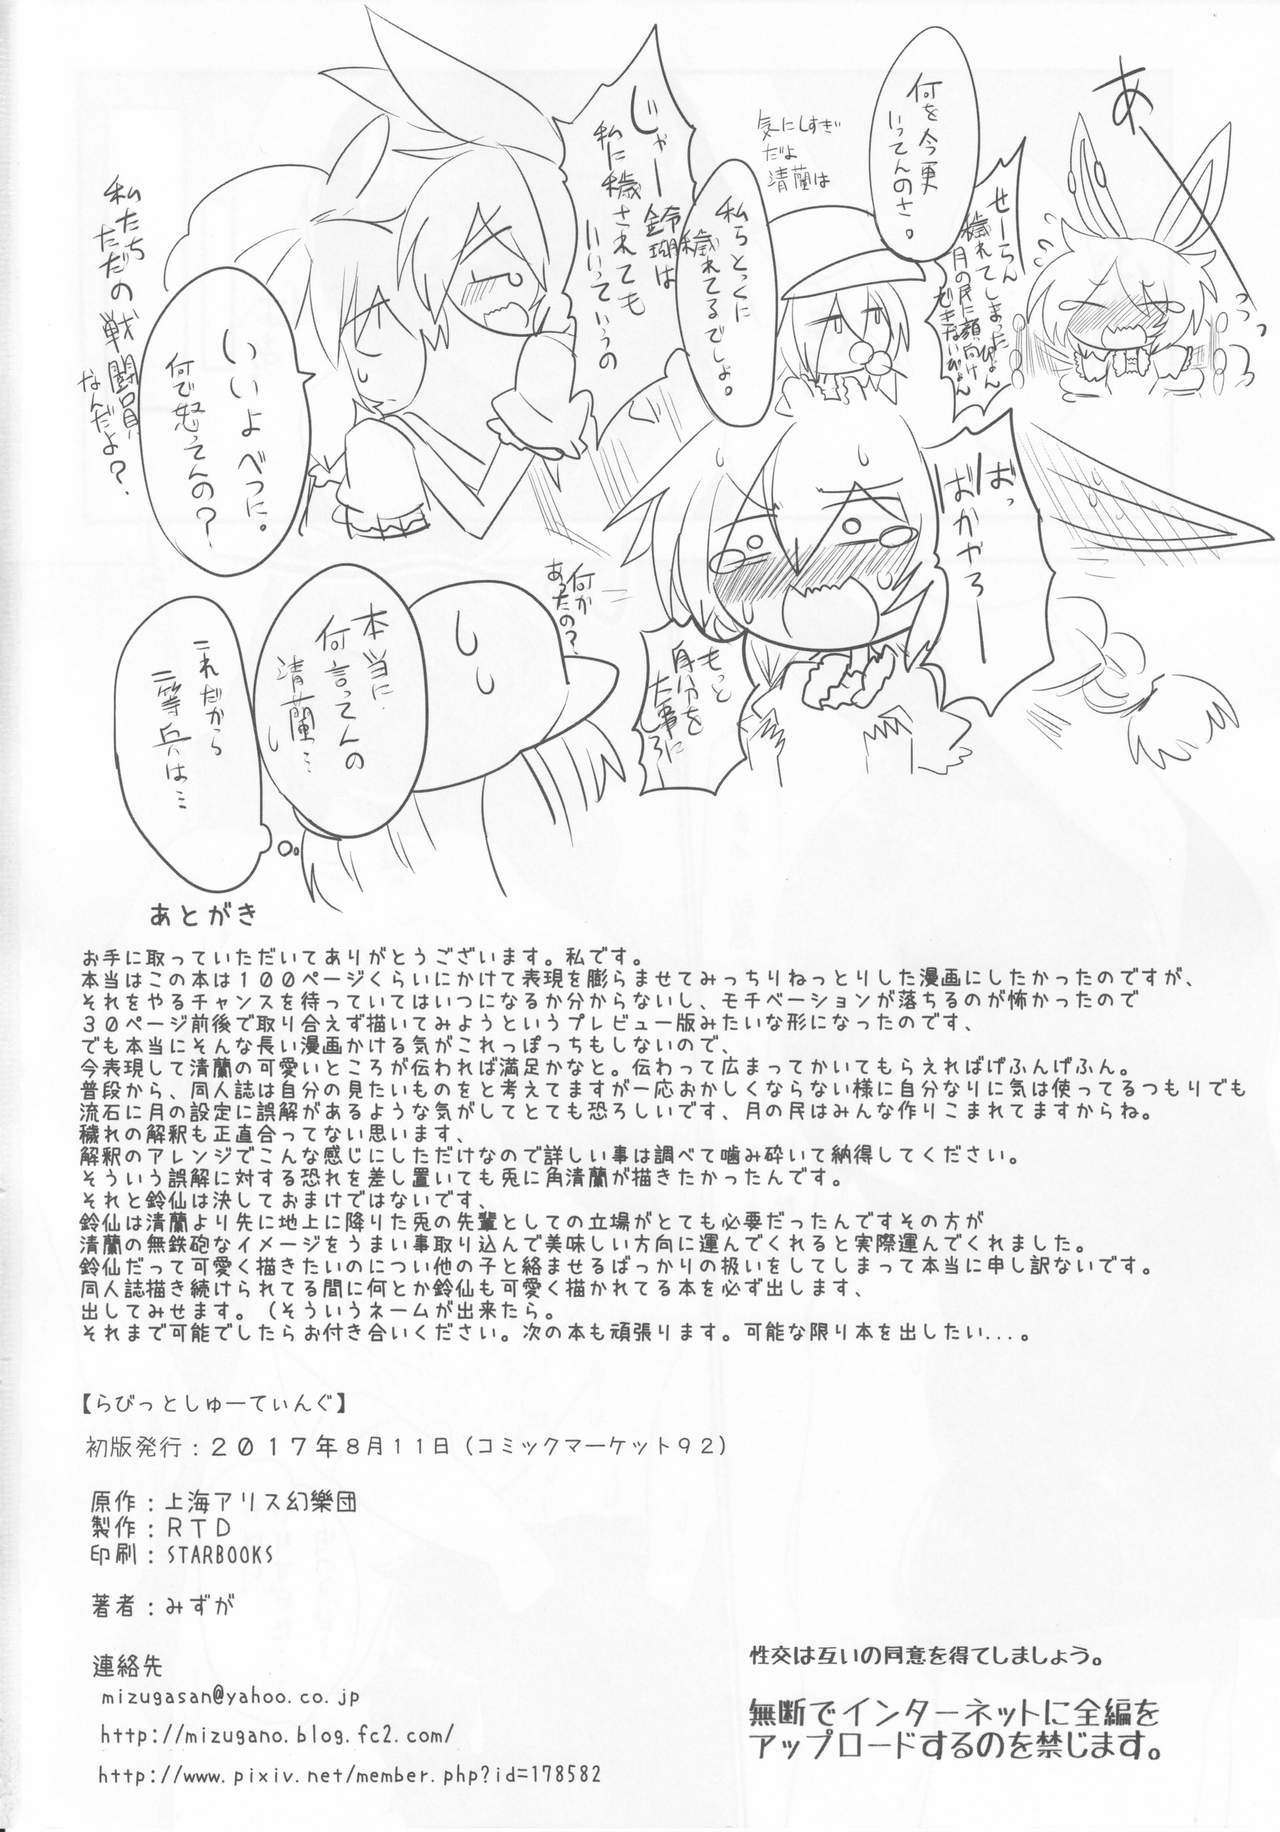 あー
うわーん
せーらん
穢れてしまったぴょん
月の民に顔向け
できないぴょん
何を今更
いってんのさ。
気にしすぎ
だよ
清蘭は
私らとっくに
穢れてるでしょ。
じゃー鈴瑚は
私に穢されても
いいっていうの
いいよべつに。
何で怒ってんの?
私たち
ただの戦闘員
なんだよ?
ばっ
ばかやろー
もっと
自分を
大事に
ろー
何か
あったの?
本当に
何言ってんの
清蘭…
これだから
二等兵は…
あとがき
お手に取っていただいてありがとうございます。私です。
本当はこの本は100ページくらいにかけて表現を膨らませてみっちりねっとりした漫画にしたかったのですが、
それをやるチャンスを待っていてはいつになるか分からないし、モチベーションが落ちるのが怖かったので
30ページ前後で取り合えず描いてみようというプレビュー版みたいな形になったのです、
でも本当にそんな長い漫画かける気がこれっぽっちもしないので、
今表現して清蘭の可愛いところが伝われば満足かなと。伝わって広まってかいてもらえればげふんげふん。
普段から、同人誌は自分の見たいものをと考えてますが一応おかしくならない様に自分なりに気は使ってるつもりでも
流石に月の設定に誤解があるような気がしてとても恐ろしいです、月の民はみんな作りこまれてますからね。
穢れの解釈も正直合ってない思います、
解釈のアレンジでこんな感じにしただけなので詳しい事は調べて噛み砕いて納得してください。
そういう誤解に対する恐れを差し置いても兎に角清蘭が描きたかったんです。
それと鈴仙は決しておまけではないです、
鈴仙は清蘭より先に地上に降りた兎の先輩としての立場がとても必要だったんですその方が
清蘭の無鉄砲なイメージをうまい事取り込んで美味しい方向に運んでくれると実際運んでくれました。
鈴仙だって可愛く描きたいのについ他の子と絡ませるばっかりの扱いをしてしまって本当に申し訳ないです。
同人誌描き続けられてる間に何とか鈴仙も可愛く描かれてる本を必ず出します、
出してみせます。(そういうネームが出来たら。
それまで可能でしたらお付き合いください。次の本も頑張ります。可能な限り本を出したい...。
【らびっとしゅーてぃんぐ】
初版発行:2017年8月11日(コミックマーケット92)
原作:上海アリス幻樂団
製作:RTD
印刷:STARBOOKS
著者:みずが
連絡先
mizugasan@yahoo.co.jp
http://mizugano.blog.fc2.com/
http://www.pixiv.net/member.php?id=178582
性交は互いの同意を得てしましょう。
無断でインターネットに全編を
アップロードするのを禁じます。